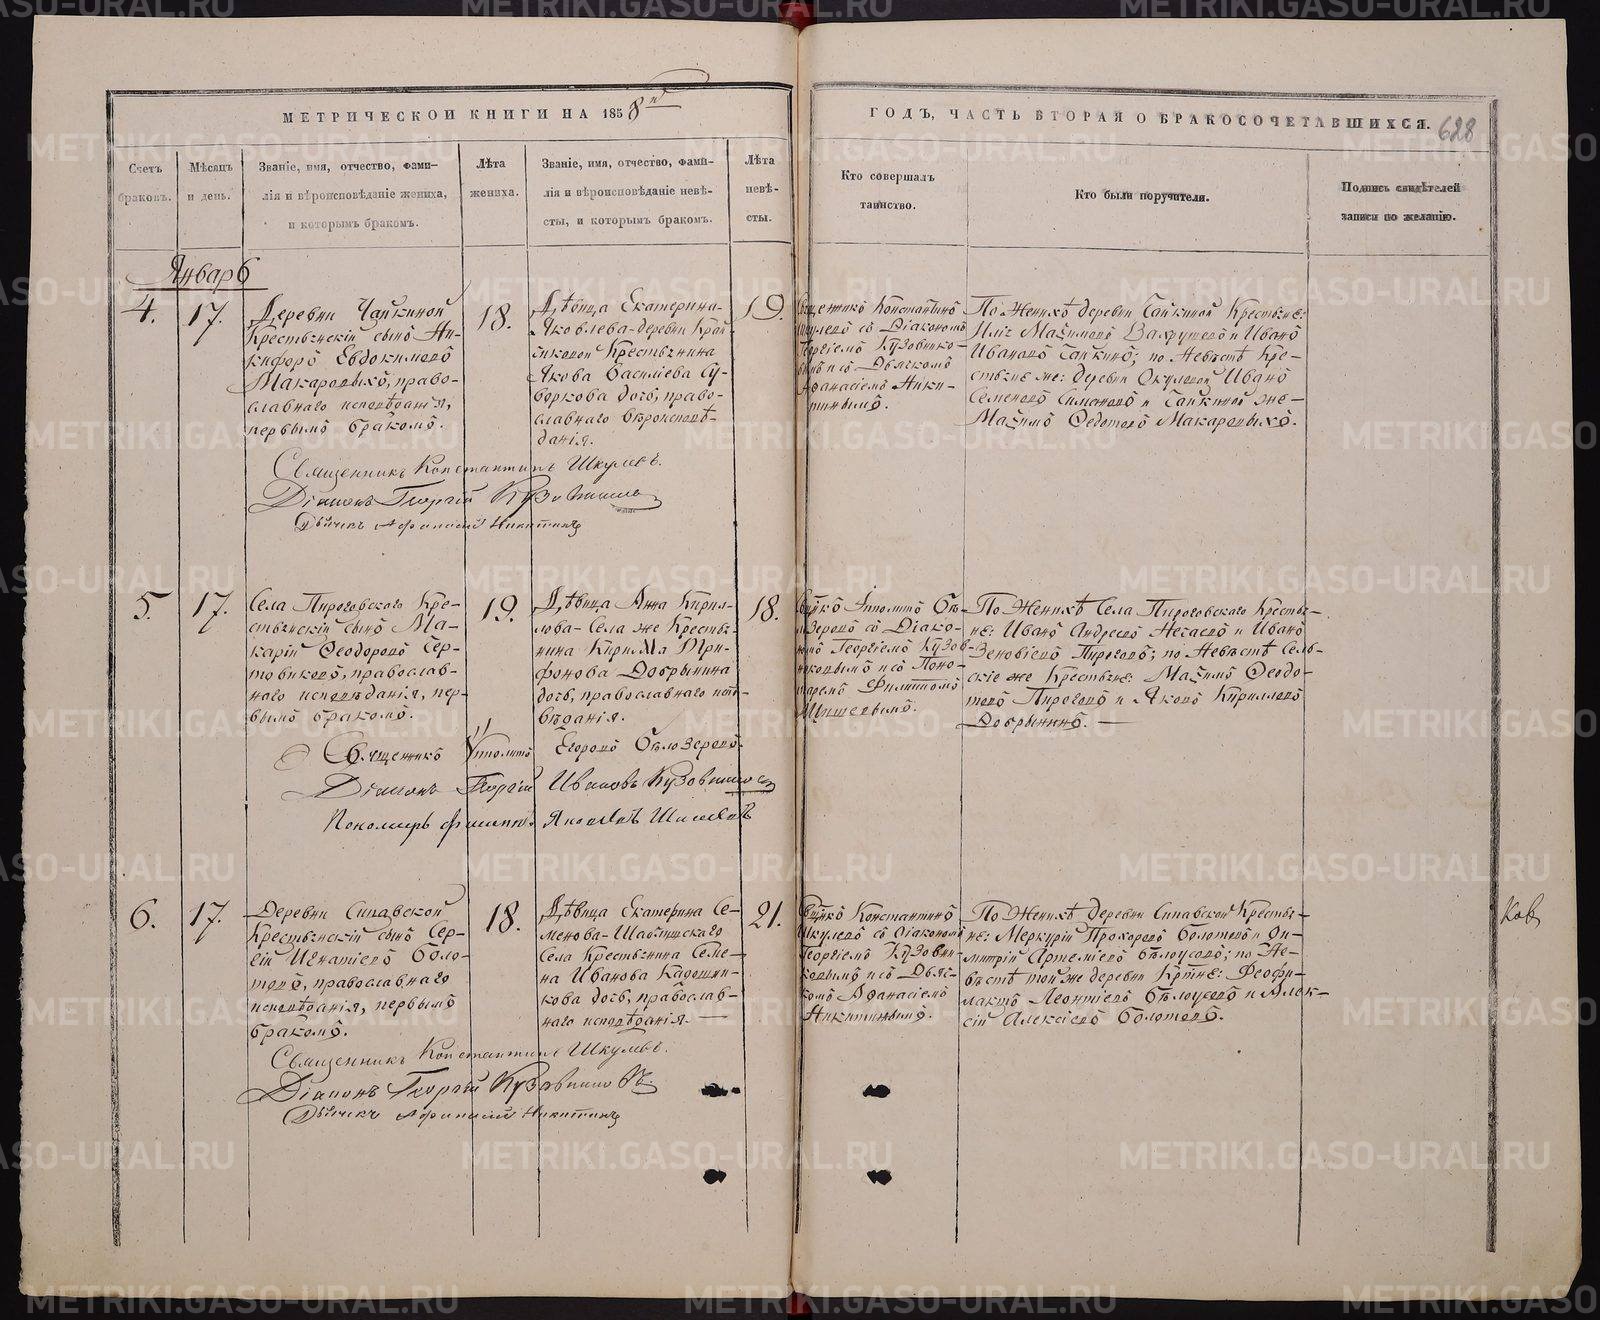 МЕТРИЧЕСКОЙ КНИГИ НА 1858й
ГОДЪ, ЧАСТЬ ВТОРАЯ О БРАКОСОЧЕТАВШИХСЯ.
628
Счетъ
браковъ.
Мѣсяцъ
и день.
Званіе, имя, отчество, фами-
лія и вѣроисповѣданіе жениха,
и которымъ бракомъ.
Лѣта
жениха.
Званіе, имя, отчество, фами-
лія и вѣроисповѣданіе невѣ-
сты, и которымъ бракомъ.
Лѣта
невѣ-
сты.
Кто совершалъ
таинство.
Кто были поручители.
Подпись свидѣтелей
записи по желанію.
Январь
4.
17.
Деревни Чапкиной
Крестьянскій сынъ Ни-
кифоръ Евдокимовъ
Макаровыхъ, право-
славнаго исповѣданія,
первымъ бракомъ.
18.
Дѣвица Екатерина
Яковлева-деревни
Крестьянина
Якова Василіева Су-
воркова дочь, право-
славнаго вѣроисповѣ-
данія.
19.
Константинъ
Шкулевъ съ Діакономъ
Георгіемъ Кузовнико-
вымъ и съ Дьячкомъ
Афанасіемъ Ники-
тинымъ.
По Женихѣ деревни Чапкиной Крестьяне:
Максимовъ Вахрушевъ и Иванъ
Ивановъ Чапкинъ; по Невѣстѣ Кре-
стьяне же: деревни Окуловой Иванъ
Семеновъ и Чапкиной же-
Максимъ Федотовъ Макаровыхъ.
Священникъ Константинъ Шкулевъ.
Діаконъ Георгій Кузовниковъ
Дьячекъ Афанасій Никитинъ
5.
17.
Села Пироговскаго Кре-
стьянскій сынъ Ма-
карій Ѳеодоровъ Чер-
товиковъ, православ-
наго исповѣданія, пер-
вымъ бракомъ.
19.
Дѣвица Анна Кирил-
лова-Села же Крестья-
нина Кирилла Три-
фонова Добрынина
дочь, православнаго испо-
вѣданія.
18.
Ипполитъ Бѣ-
лозеровъ съ Діако-
номъ Георгіемъ Кузов-
никовымъ и съ Поно-
маремъ Филиппомъ
Шишевымъ.
По Женихѣ Села Пироговскаго Крестья-
не: Иванъ Андреевъ Негасовъ и Иванъ
Зеновіевъ Пироговъ; по Невѣстѣ Сель-
скіе же Крестьяне: Максимъ Ѳеодо-
товъ Пироговъ и Яковъ Кирилловъ
Добрынинъ.
Священникъ Ипполитъ Егоровъ Бѣлозеровъ.
Діаконъ Георгій Ивановъ Кузовниковъ
Пономарь Филиппъ Яковлевъ Шишевъ
6.
17.
Деревни Сипавской
Крестьянскій сынъ Сер-
гій Игнатіевъ Боло-
товъ, православнаго
исповѣданія, первымъ
бракомъ.
18.
Дѣвица Екатерина Се-
менова-Шаблишскаго
Села Крестьянина Семе-
на Иванова Кадошни-
кова дочь, православ-
наго исповѣданія.
21.
Константинъ
Шкулевъ съ Діакономъ
Георгіемъ Кузовни-
ковымъ и съ Дьяч-
комъ Афанасіемъ
Никитинымъ.
По Женихѣ деревни Сипавской Крестья-
не: Меркурій Прохоровъ Болотовъ и Ди-
митрій Артеміевъ Бѣлоусовъ; по Не-
вѣстѣ той же деревни Кртне: Феофи-
лактъ Леонтіевъ Бѣлоусовъ и Алек-
сій Алексіевъ Болотовъ.
Священникъ Константинъ Шкулевъ.
Діаконъ Георгій Кузовниковъ.
Дьячекъ Афанасій Никитинъ
METRIKI.GASO-URAL.RU